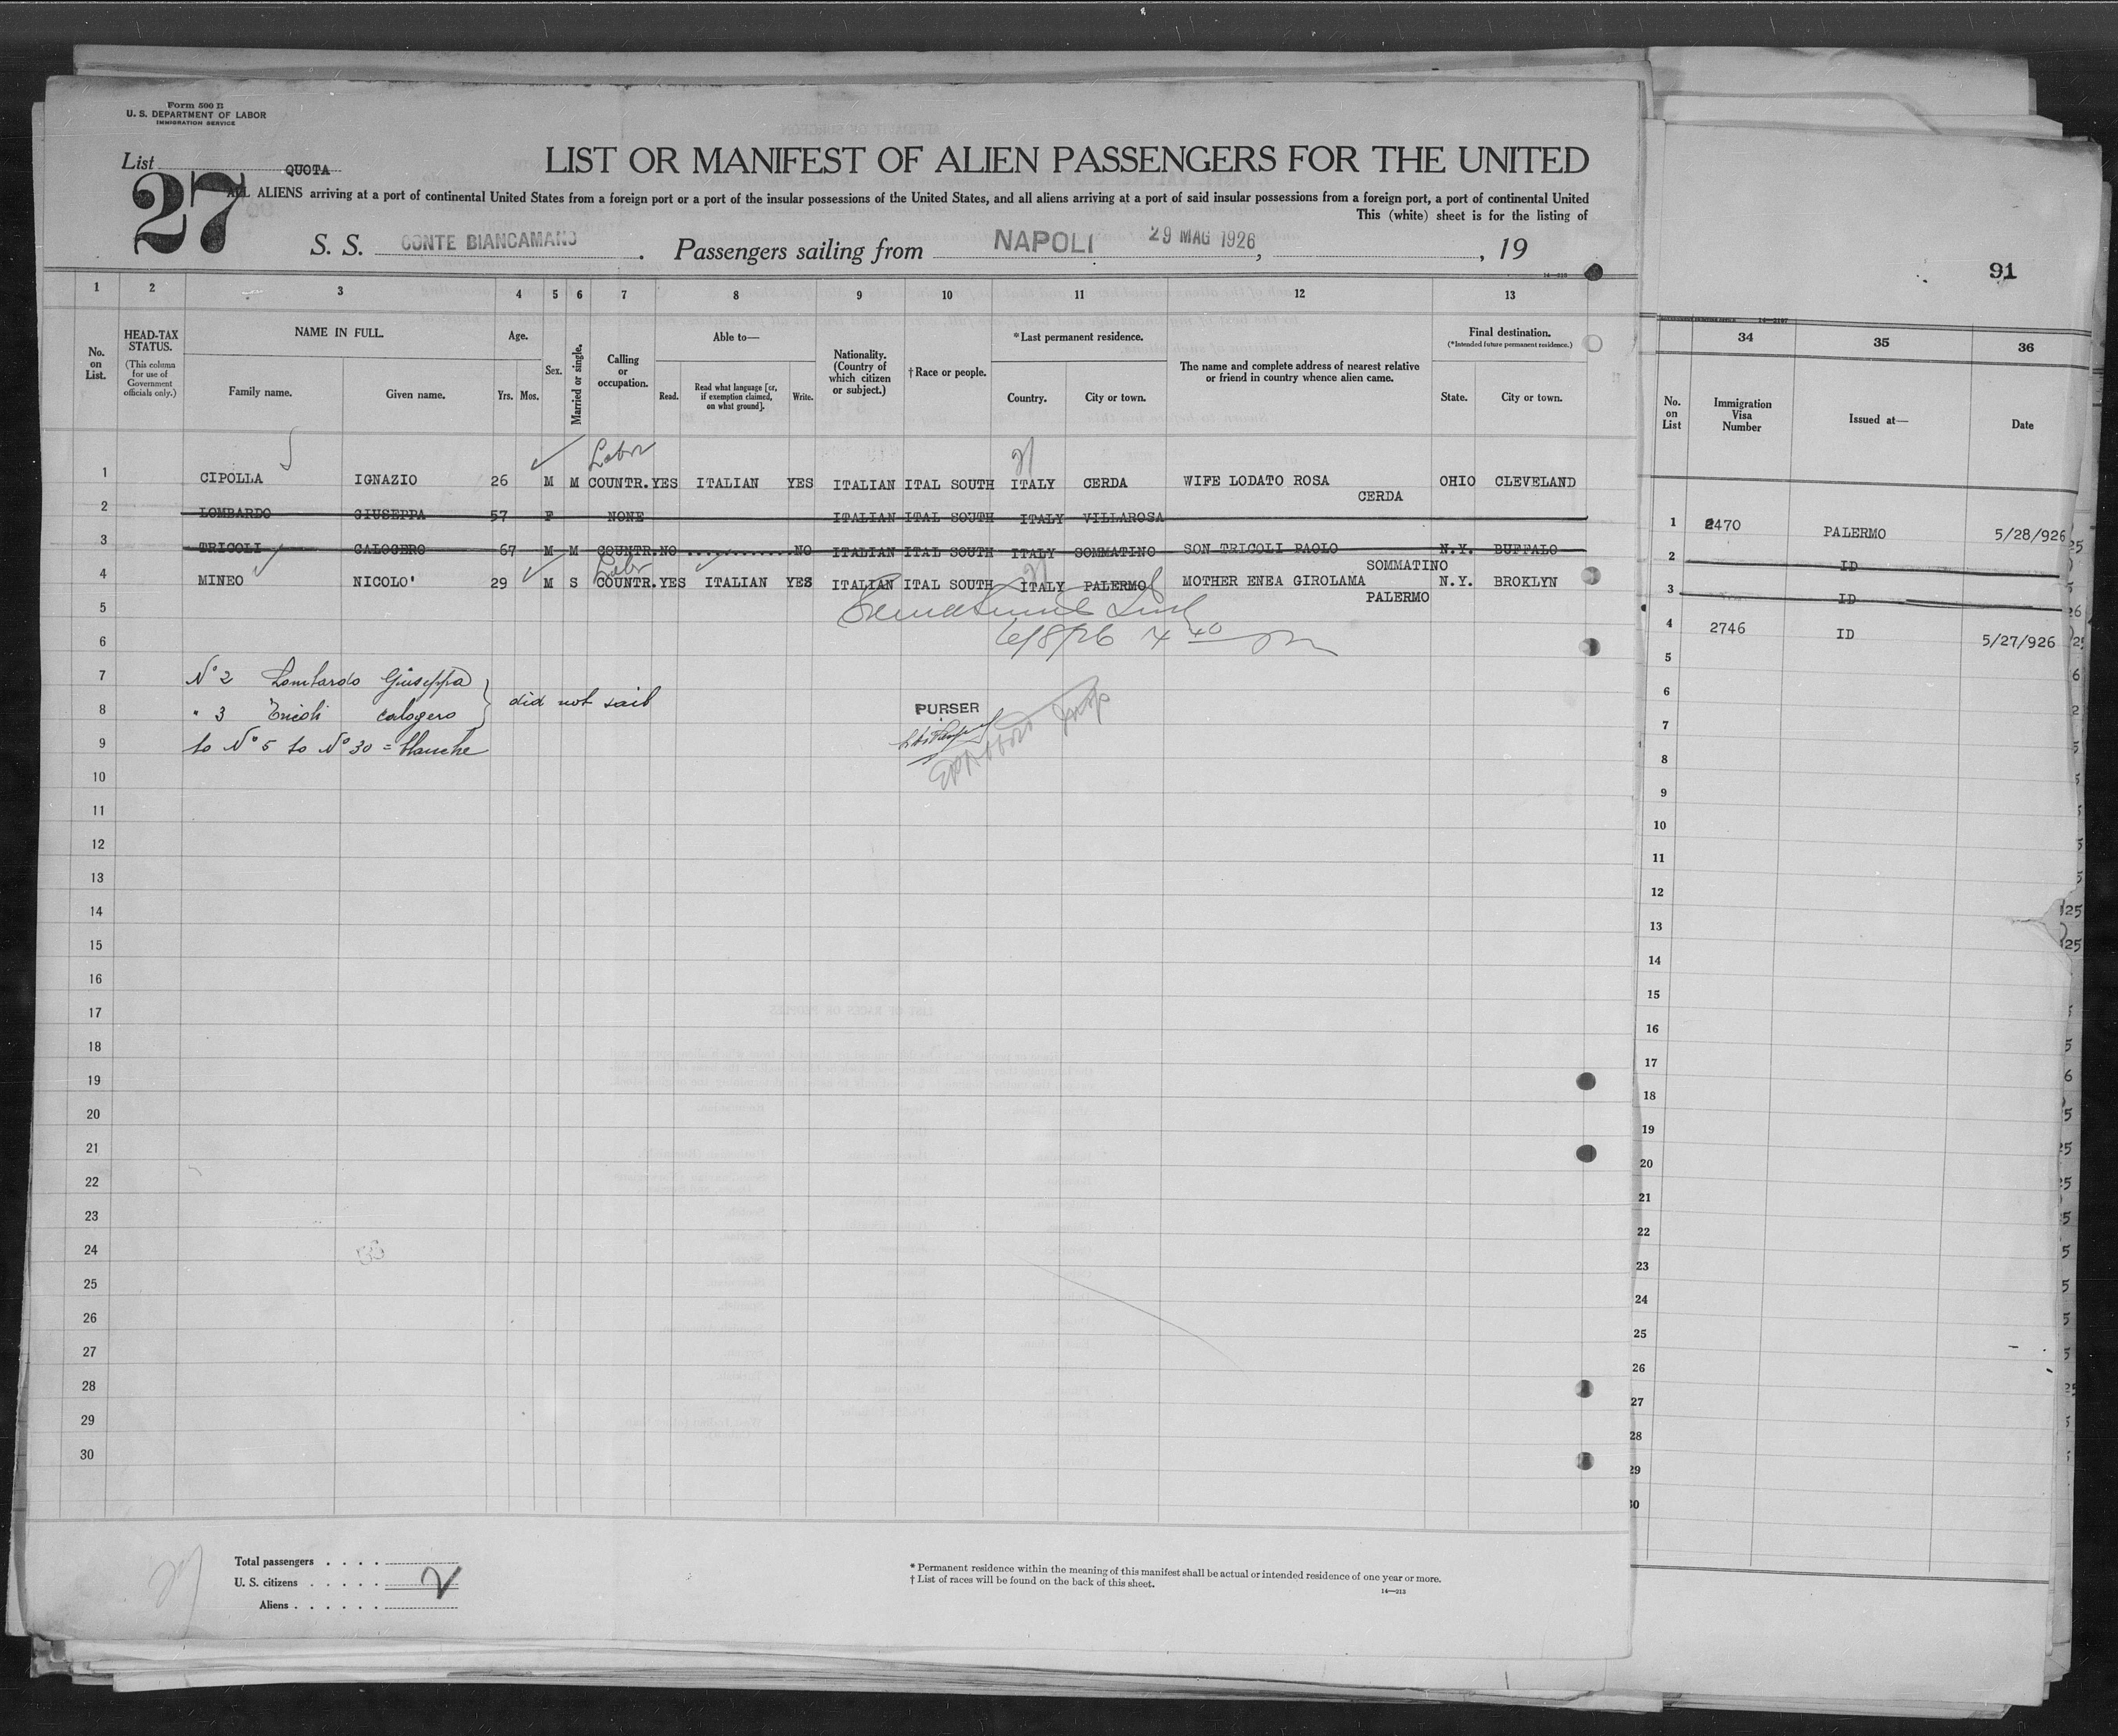 Form 500 B
U. S. DEPARTMENT OF LABOR
IMMIGRATION SERVICE
List QUOTA
27
LIST OR MANIFEST OF ALIEN PASSENGERS FOR THE UNITED
ALL ALIENS arriving at a port of continental United States from a foreign port or a port of the insular possessions of the United States, and all aliens arriving at a port of said insular possessions from a foreign port, a port of continental United
This (white) sheet is for the listing of
S. S. CONTE BIANCAMANO. Passengers sailing from NAPOLI, 29 MAG 1926, 19
14—213
91
1 2 3 4 5 6 7 8 9 10 11 12 13
No. on List.
HEAD-TAX STATUS.
(This column for use of Government officials only.)
NAME IN FULL.
Family name. Given name.
Age.
Yrs. Mos.
Sex.
Married or single.
Calling or occupation.
Able to—
Read. Read what language [or, if exemption claimed, on what ground]. Write.
Nationality. (Country of which citizen or subject.)
†Race or people.
*Last permanent residence.
Country. City or town.
The name and complete address of nearest relative or friend in country whence alien came.
Final destination.
(*Intended future permanent residence.)
State. City or town.
34 35 36
No. on List
Immigration Visa Number
Issued at—
Date
Labr
1 CIPOLLA IGNAZIO 26 M M COUNTR. YES ITALIAN YES ITALIAN ITAL SOUTH ITALY CERDA WIFE LODATO ROSA CERDA OHIO CLEVELAND
2 LOMBARDO GIUSEPPA 57 F NONE ITALIAN ITAL SOUTH ITALY VILLAROSA
3 TRICOLI CALOGERO 67 M M COUNTR. NO ............ NO ITALIAN ITAL SOUTH ITALY SOMMATINO SON TRICOLI PAOLO SOMMATINO N.Y. BUFFALO
Labr
4 MINEO NICOLO' 29 M S COUNTR. YES ITALIAN YES ITALIAN ITAL SOUTH ITALY PALERMO MOTHER ENEA GIROLAMA PALERMO N.Y. BROKLYN
5
6 6/8/26 4 40
7 N° 2 Lombardo Giuseppa
8 " 3 Tricoli Calogero } did not sail
PURSER
9 to N° 5 to N° 30 = blanche
10
11
12
13
14
15
16
17
18
19
20
21
22
23
24
25
26
27
28
29
30
1 2470 PALERMO 5/28/926
2 ID
3 ID
4 2746 ID 5/27/926
5
6
7
8
9
10
11
12
13
14
15
16
17
18
19
20
21
22
23
24
25
26
27
28
29
30
Total passengers . . . .
U. S. citizens . . . . . 2
Aliens . . . . . .
* Permanent residence within the meaning of this manifest shall be actual or intended residence of one year or more.
† List of races will be found on the back of this sheet.
14—213